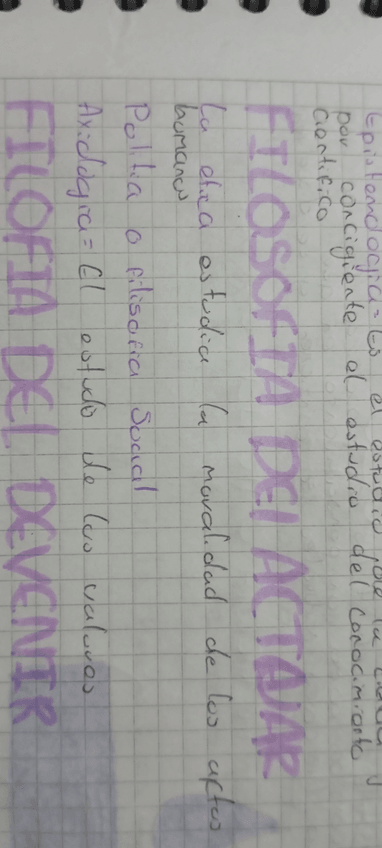 Epistemologia= Es el estudio por la ciencia y
por concigiente el estudio del conocimiento
cientifico
FILOSOFIA DEl ACTUAR
La etica estudia la moralidad de los actos
humanos
Politia o filisofia Social
Axiologia= El estudo de los valores
FILOFIA DEL DEVENIR